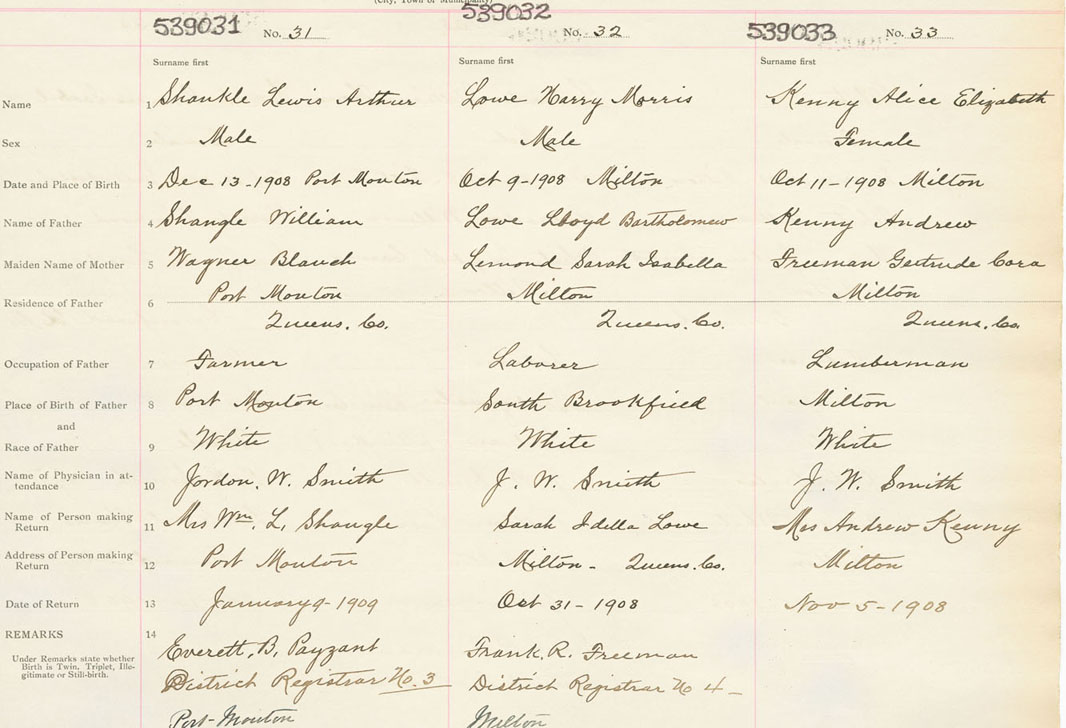 (City, Town or Municipality)
539031 No. 31 539032 No. 32 539033 No. 33
Surname first Surname first Surname first
Name 1 Shankle Lewis Arthur Lowe Harry Morris Kenny Alice Elizabeth
Sex 2 Male Male Female
Date and Place of Birth 3 Dec 13-1908 Port Mouton Oct 9-1908 Milton Oct 11-1908 Milton
Name of Father 4 Shangle William Lowe Lloyd Bartholomew Kenny Andrew
Maiden Name of Mother 5 Wagner Blanch Lemond Sarah Isabella Freeman Gertrude Cora
Residence of Father 6 Port Mouton Milton Milton
Queens. Co. Queens. Co. Queens. Co.
Occupation of Father 7 Farmer Laborer Lumberman
Place of Birth of Father 8 Port Mouton South Brookfield Milton
and
Race of Father 9 White White White
Name of Physician in at-
tendance 10 Jordon. W. Smith J. W. Smith J. W. Smith
Name of Person making
Return 11 Mrs Wm. L. Shangle Sarah Idella Lowe Mrs Andrew Kenny
Address of Person making
Return 12 Port Mouton Milton - Queens. Co. Milton
Date of Return 13 January 9-1909 Oct 31-1908 Nov 5-1908
REMARKS 14
Everett. B. Payzant Frank. R. Freeman
Under Remarks state whether
Birth is Twin, Triplet, Ille-
gitimate or Still-birth.
District Registrar No. 3 District Registrar No 4 -
Port-Mouton Milton